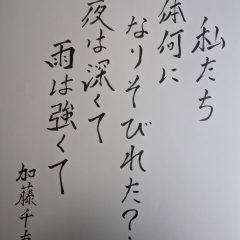 私たち
体何に
なりそびれた?
夜は深くて
雨は強くて
加藤千